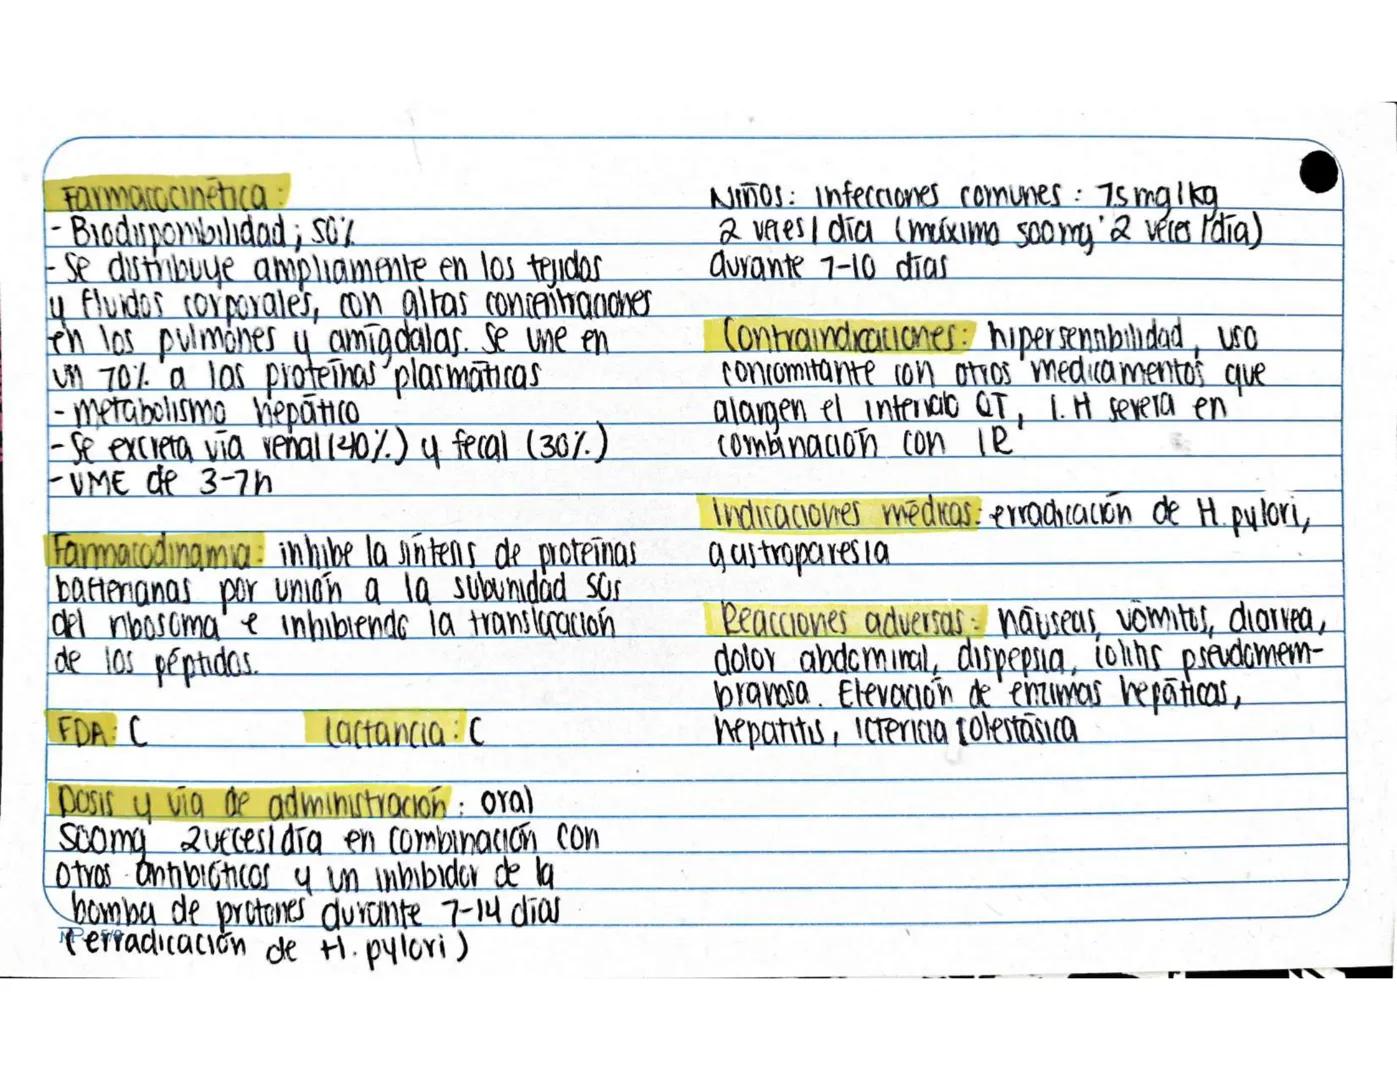 Farmacocinética:
- Biodisponibilidad; 50%
- Se distribuye ampliamente en los tejidos
y fluidos corporales, con altas concentraciones
en los pulmones y amígdalas. Se une en
un 70% a las proteínas plasmáticas
- metabolismo hepático
- Se excreta vía renal (40%) y fecal (30%)
- VME de 3-7h
Farmacodinamia: inhibe la síntesis de proteínas
bacterianas por unión a la subunidad 50s
del ribosoma e inhibiendo la translocación
de los péptidos.
FDA: C
lactancia: C
Dosis y vía de administración: oral
500mg 2veces/día en combinación con
otros antibióticos y un inhibidor de la
bomba de protones durante 7-14 días
(erradicación de H. pylori)
Niños: Infecciones comunes: 7.5mg/kg
2 veces/día (máximo 500mg 2 veces/día)
durante 7-10 días
Contraindicaciones: hipersensibilidad, uso
concomitante con otros medicamentos que
alargen el intervalo QT, I.H severa en
combinación con IR
Indicaciones médicas: erradicación de H. pylori,
gastroparesia
Reacciones adversas: náuseas, vómitos, diarrea,
dolor abdominal, dispepsia, colitis pseudomem-
branosa. Elevación de enzimas hepáticas,
hepatitis, ictericia colestásica